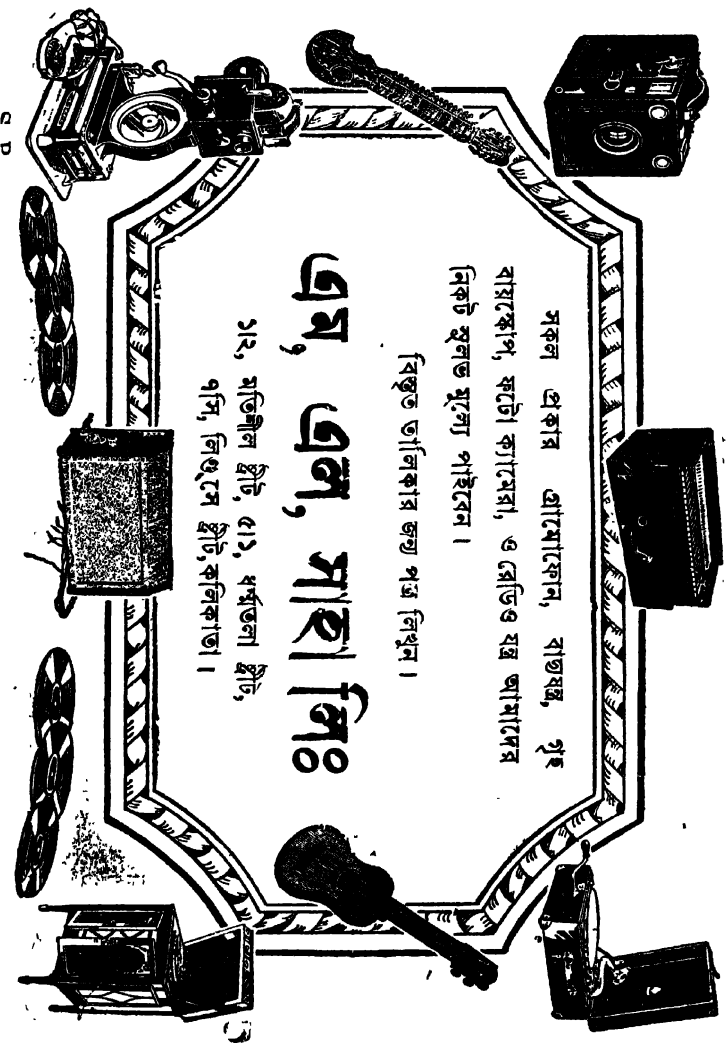 সকল প্রকার গ্রামোফোন, বাদ্যযন্ত্র, গৃহ
বায়স্কোপ, ফটো ক্যামেরা, ও রেডিও যন্ত্র আমাদের
নিকট সুলভ মূল্যে পাইবেন।
বিস্তৃত তালিকার জন্য পত্র লিখুন।
এম, এল, সাহা লিঃ
১।২, মতিশীল ষ্ট্রীট, ৫।১, ধর্ম্মতলা ষ্ট্রীট,
৭সি, লিণ্ডসে ষ্ট্রীট, কলিকাতা।